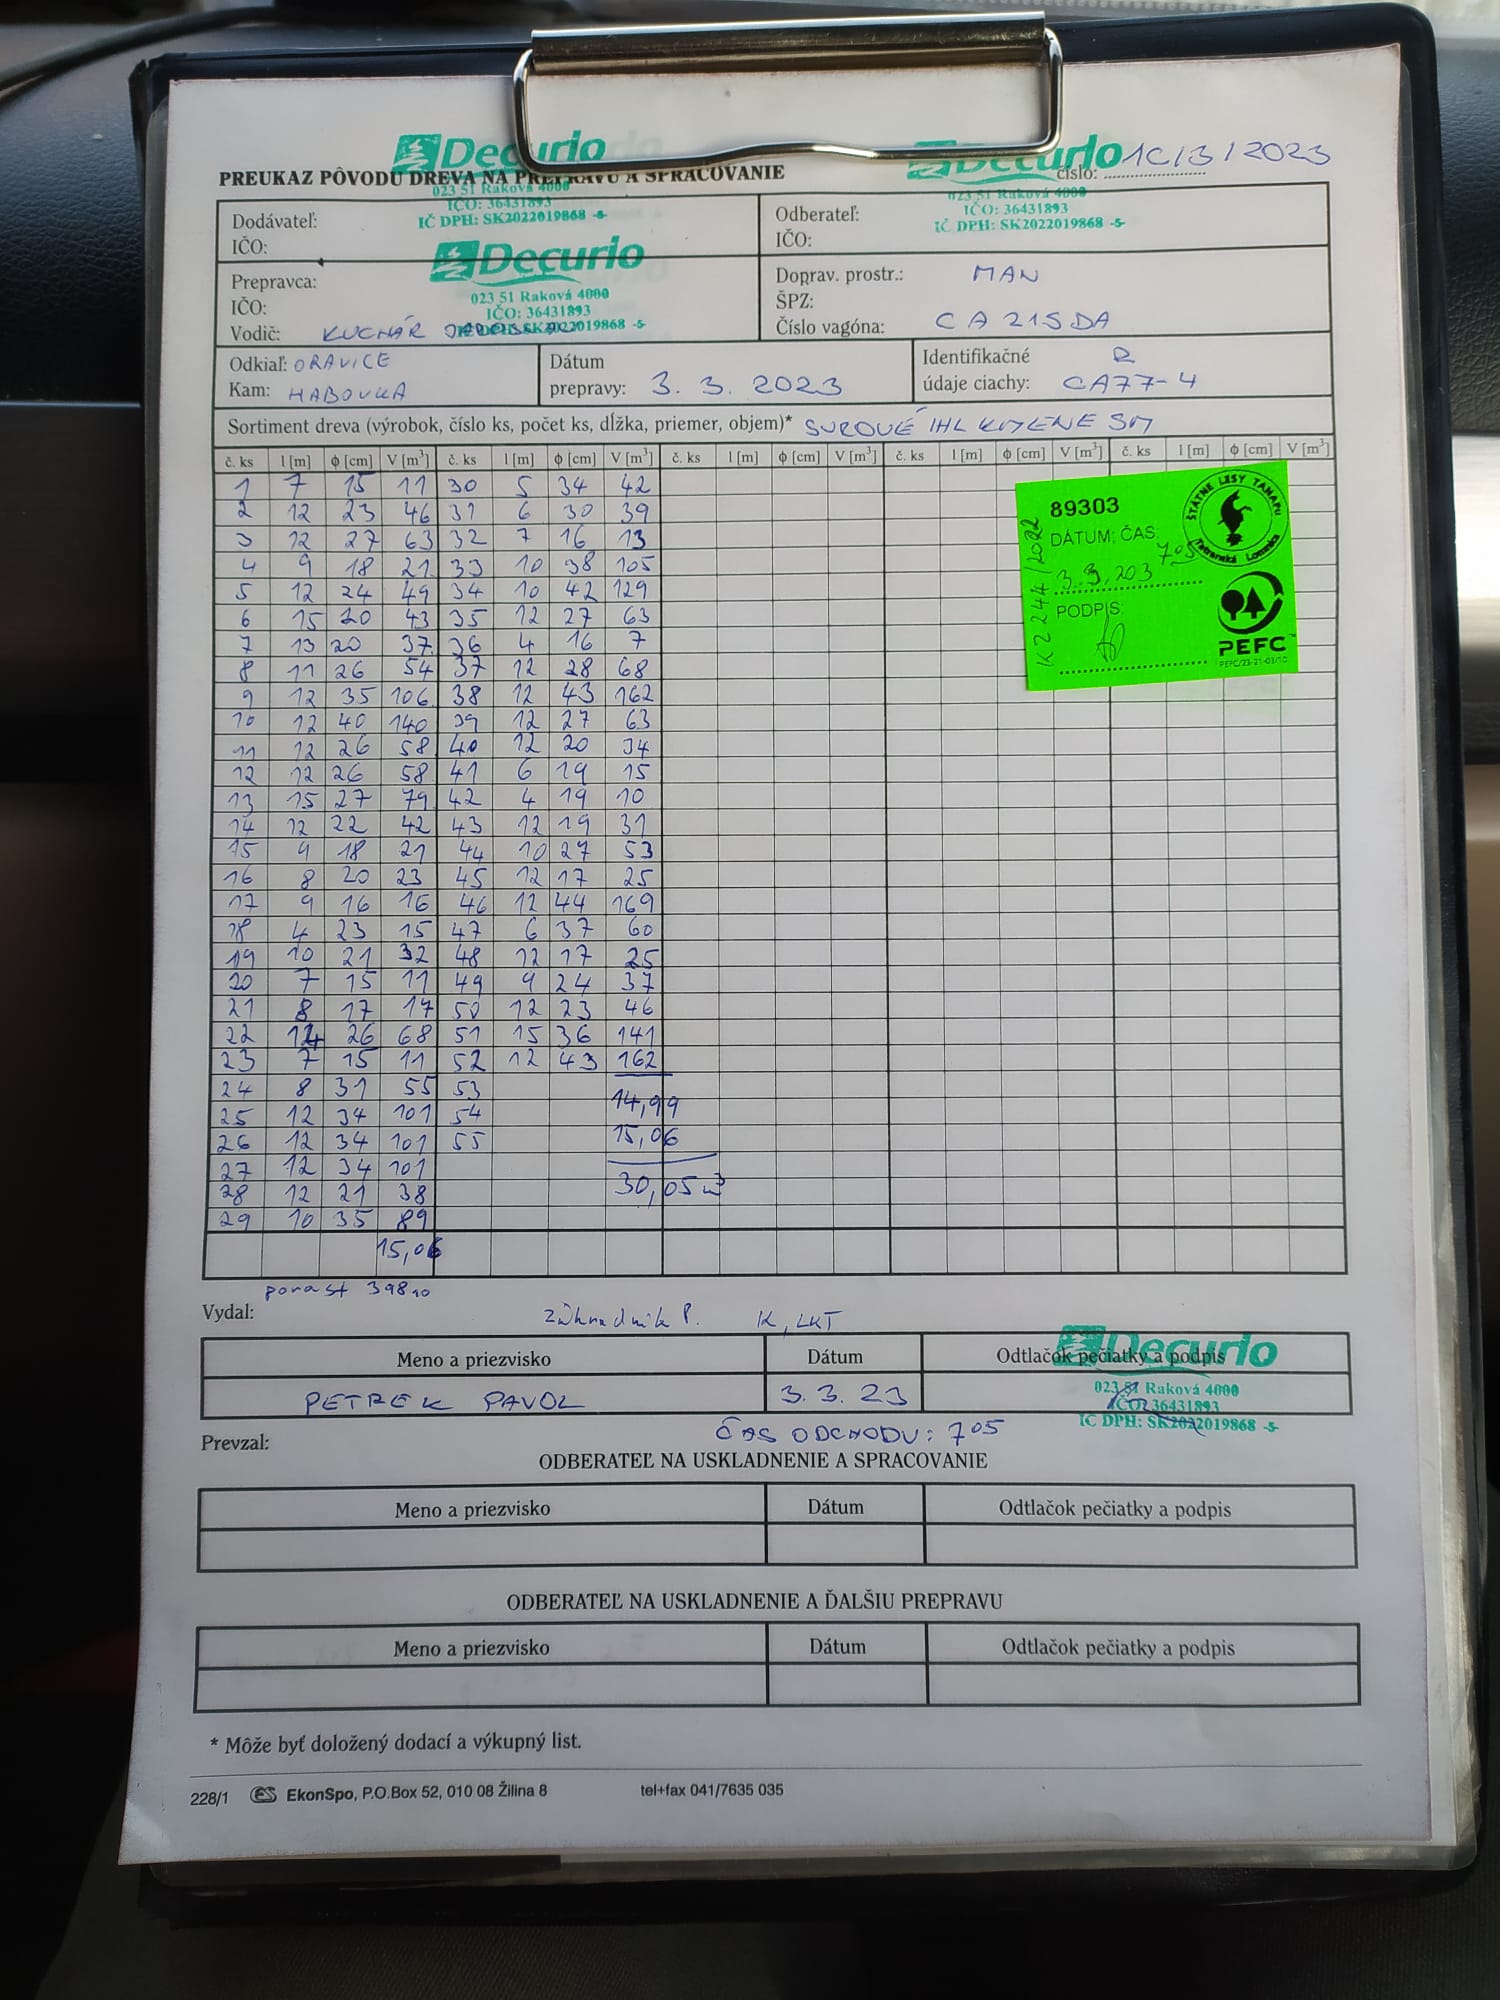 Decurio
Decurio
1C/3/2023
PREUKAZ PÔVODU DREVA NA PREPRAVU A SPRACOVANIE
číslo:
023 51 Raková 4000
IČO: 36431893
IČ DPH: SK2022019868 -5-
023 51 Raková 4000
IČO: 36431893
IČ DPH: SK2022019868 -5-
Dodávateľ:
IČO:
Odberateľ:
IČO:
Decurio
023 51 Raková 4000
IČO: 36431893
IČ DPH: SK2022019868 -5-
Prepravca:
IČO:
Vodič: KUCHÁR
Doprav. prostr.: MAN
ŠPZ:
Číslo vagóna: CA215DA
Odkiaľ: ORAVICE
Kam: HABOVKA
Dátum
prepravy: 3. 3. 2023
Identifikačné R
údaje ciachy: CA77-4
Sortiment dreva (výrobok, číslo ks, počet ks, dĺžka, priemer, objem)* SUROVÉ IHL KMENE SM
č. ks l [m] ϕ [cm] V [m³] č. ks l [m] ϕ [cm] V [m³] č. ks l [m] ϕ [cm] V [m³] č. ks l [m] ϕ [cm] V [m³] č. ks l [m] ϕ [cm] V [m³]
1 7 15 11 30 5 34 42
2 12 23 46 31 6 30 39
3 12 27 63 32 7 16 13
4 9 18 21 33 10 38 105
5 12 24 49 34 10 42 129
6 15 20 43 35 12 27 63
7 13 20 37 36 4 16 7
8 11 26 54 37 12 28 68
9 12 35 106 38 12 43 162
10 12 40 140 39 12 27 63
11 12 26 58 40 12 20 34
12 12 26 58 41 6 19 15
13 15 27 79 42 4 19 10
14 12 22 42 43 12 19 31
15 9 18 21 44 10 27 53
16 8 20 23 45 12 17 25
17 9 16 16 46 12 44 169
18 4 23 15 47 6 37 60
19 10 21 32 48 12 17 25
20 7 15 11 49 9 24 37
21 8 17 17 50 12 23 46
22 14 26 68 51 15 36 141
23 7 15 11 52 12 43 162
24 8 31 55 53
25 12 34 101 54 14,99
26 12 34 101 55 15,06
27 12 34 101
28 12 21 38 30,05 m³
29 10 35 89
15,06
89303
ŠTÁTNE LESY TANAPU
Tatranská Lomnica
DÁTUM; ČAS:
3.3.203 7 05
PODPIS:
KZ 244/2022
PEFC™
PEFC/23-21-03/10
porast 398 10
Vydal:
Záhradník P. K, LKT
Meno a priezvisko Dátum Odtlačok pečiatky a podpis
PETREK PAVOL 3.3. 23
Decurio
023 51 Raková 4000
IČO: 36431893
IČ DPH: SK2022019868 -5-
ČAS ODCHODU: 7 05
Prevzal:
ODBERATEĽ NA USKLADNENIE A SPRACOVANIE
Meno a priezvisko Dátum Odtlačok pečiatky a podpis
ODBERATEĽ NA USKLADNENIE A ĎALŠIU PREPRAVU
Meno a priezvisko Dátum Odtlačok pečiatky a podpis
* Môže byť doložený dodací a výkupný list.
228/1 ES EkonSpo, P.O.Box 52, 010 08 Žilina 8 tel+fax 041/7635 035